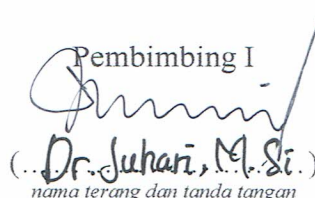 Pembimbing I
(..Dr. Juhari, M.Si..)
nama terang dan tanda tangan